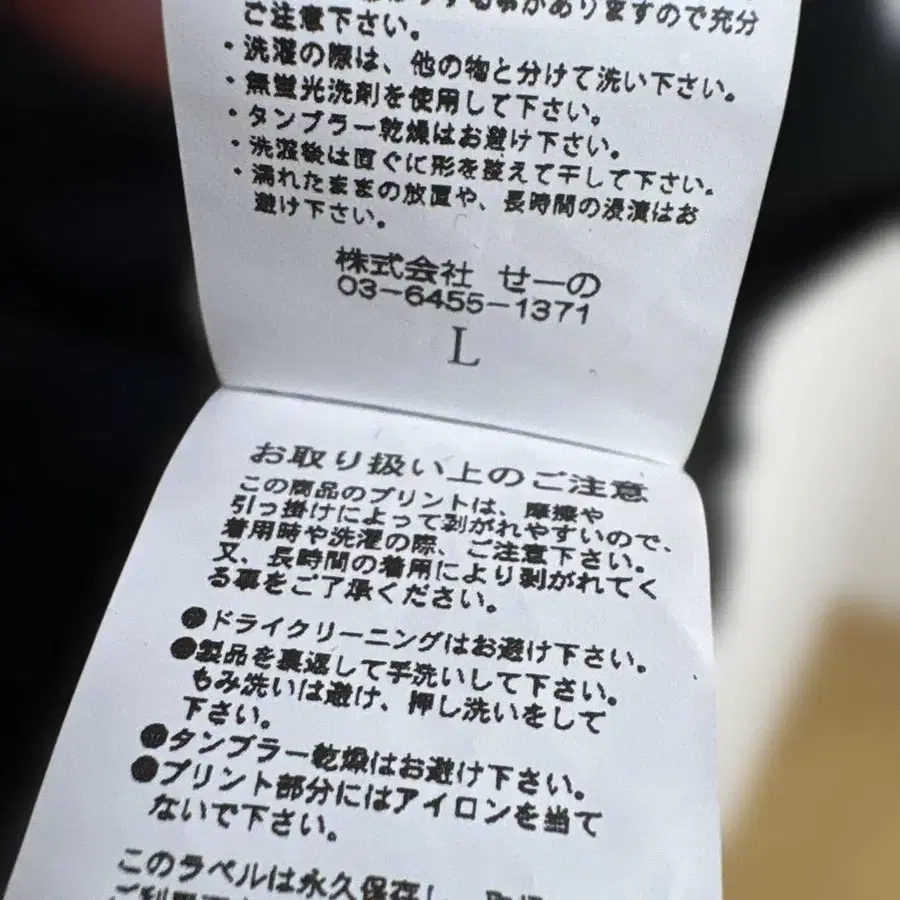 する事がありますので充分
ご注意下さい。
・洗濯の際は、他の物と分けて洗い下さい。
・無蛍光洗剤を使用して下さい。
・タンブラー乾燥はお避け下さい。
・洗濯後は直ぐに形を整えて干して下さい。
・濡れたままの放置や、長時間の浸漬はお
避け下さい。
株式会社 せーの
03-6455-1371
L
お取り扱い上のご注意
この商品のプリントは、摩擦や
引っ掛けによって剥がれやすいので、
着用時や洗濯の際、ご注意下さい。
又、長時間の着用により剥がれてく
る事をご了承ください。
●ドライクリーニングはお避け下さい。
●製品を裏返して手洗いして下さい。
もみ洗いは避け、押し洗いをして
下さい。
●タンブラー乾燥はお避け下さい。
●プリント部分にはアイロンを当て
ないで下さい。
このラベルは永久保存し、